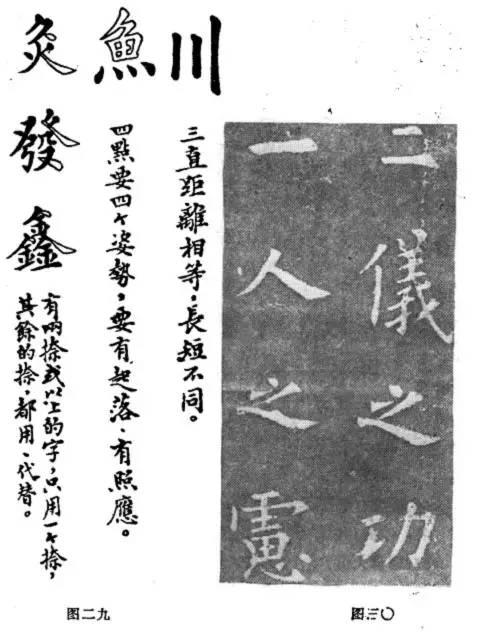 川
三直距離相等，長短不同。
魚
四點要四个姿勢，要有起落、有照應。
炙
發
鑫
有兩捺或以上的字，只用一个捺，
其餘的捺，都用丶代替。
图二九
二儀之功
一人之慮
图三〇